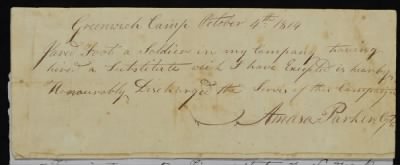 Greenwich Camp October 4th 1814
Jared Foot a Soldier in my Company having
hired a Substitute wich I have Excepted is hereby
Honourably Discharged the Service of this Campaign
Amasa Parker